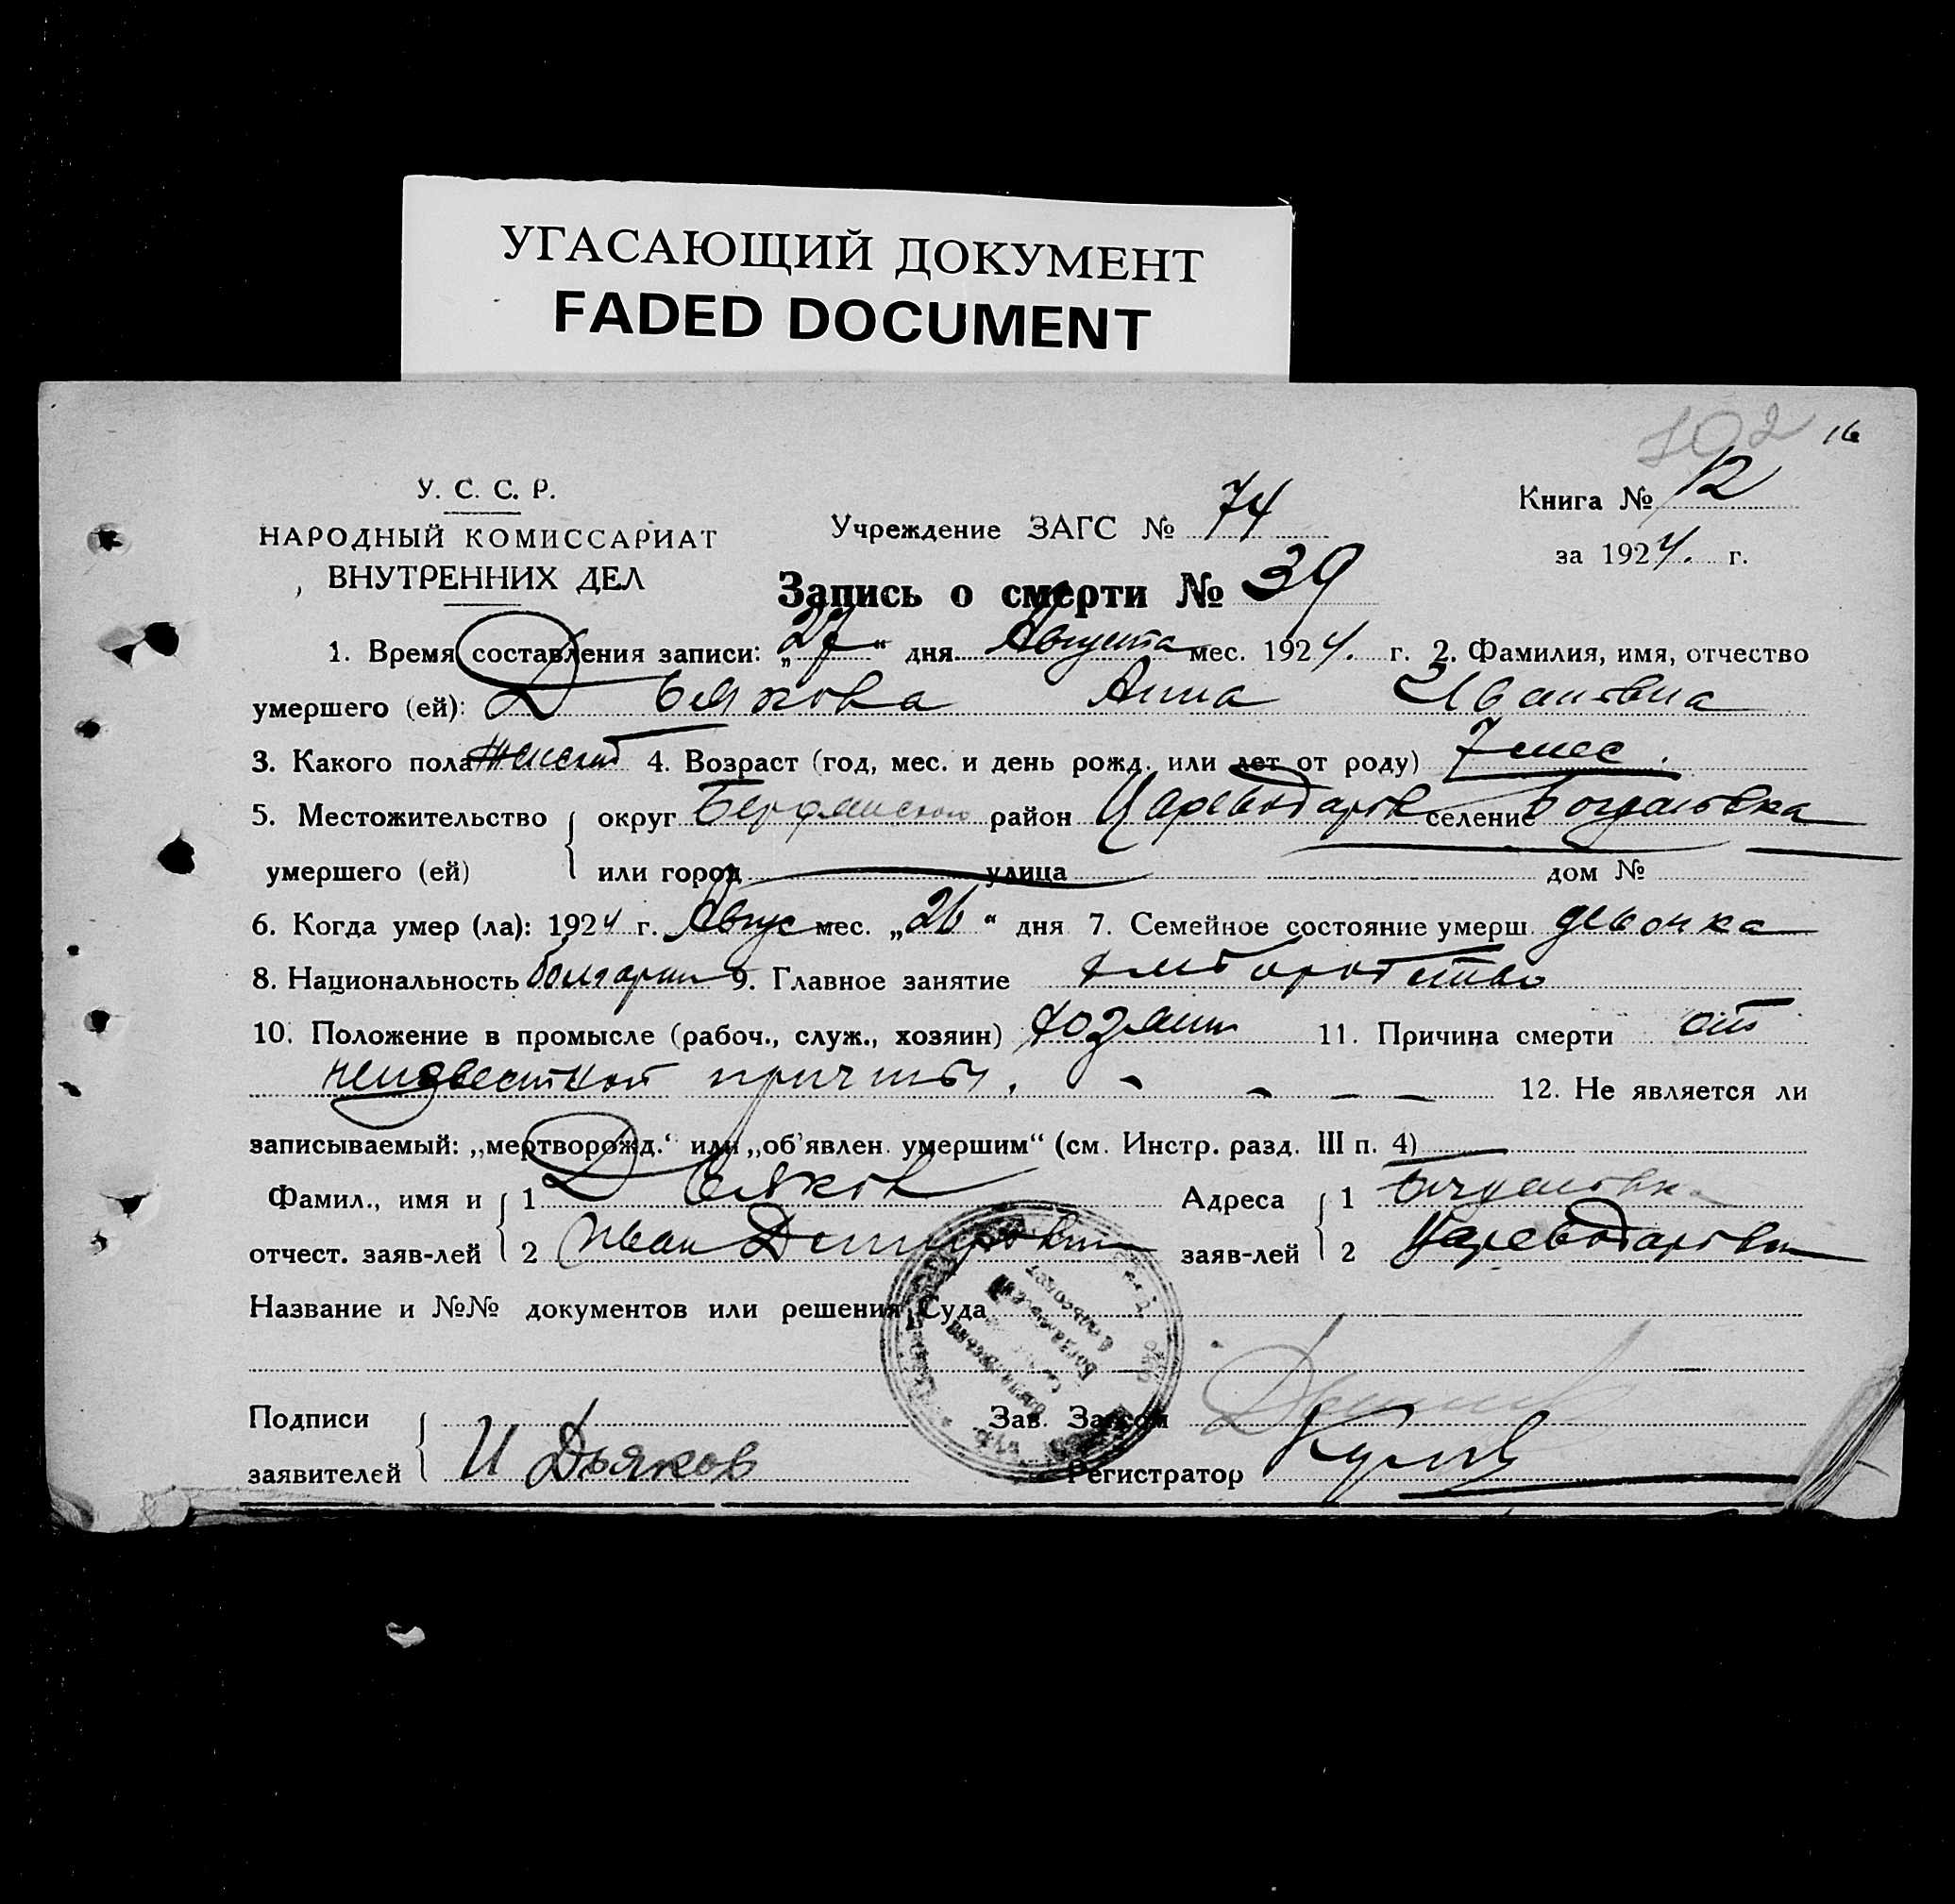 УГАСАЮЩИЙ ДОКУМЕНТ
FADED DOCUMENT
102 16
У. С. С. Р.
НАРОДНЫЙ КОМИССАРИАТ
ВНУТРЕННИХ ДЕЛ
Учреждение ЗАГС № 74
Книга № 12
за 1924. г.
Запись о смерти № 39
1. Время составления записи: „27“ дня Августа мес. 1924. г. 2. Фамилия, имя, отчество
умершего (ей): Дьякова Анна Ивановна
3. Какого пола Женский 4. Возраст (год, мес. и день рожд. или лет от роду) 7 мес.
5. Местожительство округ Бердянский район Цареводаровк селение Богдановка
умершего (ей) или город улица дом №
6. Когда умер (ла): 1924 г. Авгус мес. „26“ дня 7. Семейное состояние умерш. девочка
8. Национальность болгарин 9. Главное занятие хлеборобство
10. Положение в промысле (рабоч., служ., хозяин) хозяин 11. Причина смерти от
неизвестной причины. 12. Не является ли
записываемый: „мертворожд.“ или „об'явлен. умершим“ (см. Инстр. разд. III п. 4)
Фамил., имя и 1 Дьяков Адреса 1 Богдановка
отчест. заяв-лей 2 Иван Дмитрович заяв-лей 2
Название и №№ документов или решения Суда
Подписи Зав. Загсом
заявителей И Дьяков Регистратор